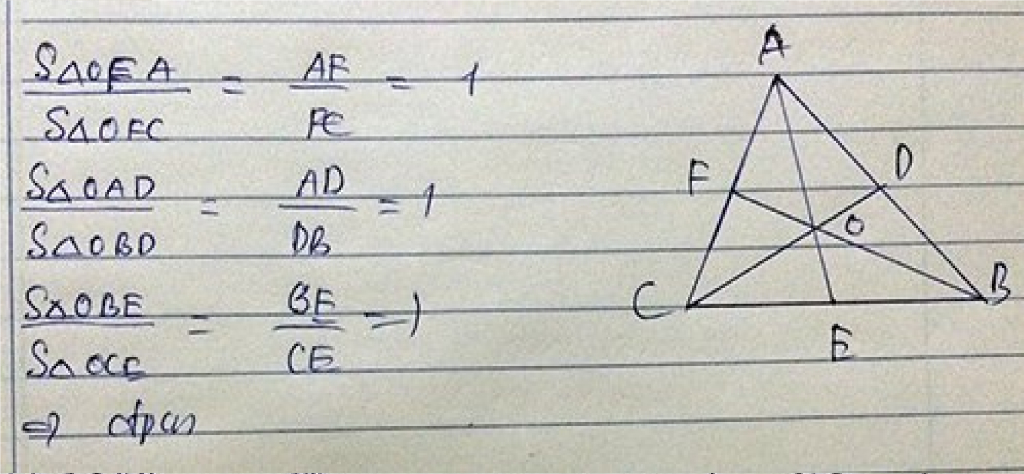 SΔOFA / SΔOFC = AF / FC = 1
SΔOAD / SΔOBD = AD / DB = 1
SΔOBE / SΔOCE = BE / CE = 1
⇒ đfpcm
A
F
D
O
C
B
E